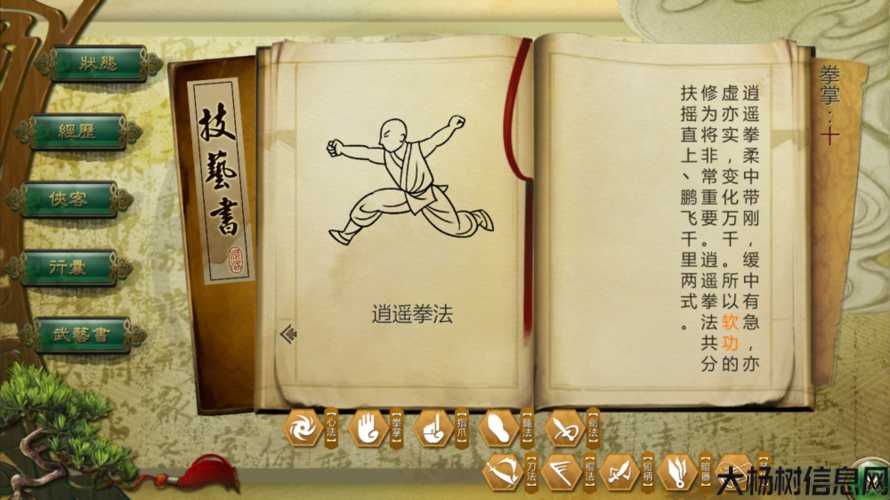 狀態
經歷
俠客
行囊
武藝書
技藝書
逍遥拳法
拳掌：十
逍遥拳柔中带刚，缓中有急，亦
虚亦实，变化万千。所以软功的
修为将非常重要。逍遥拳法共分
扶摇直上、鹏飞千里两式。
心法
拳掌
指爪
腿法
劍法
刀法
暗器
大杨树信息网